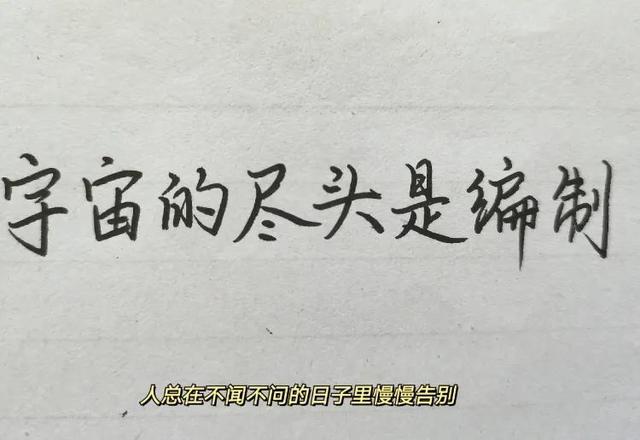 宇宙的尽头是编制
人总在不闻不问的日子里慢慢告别